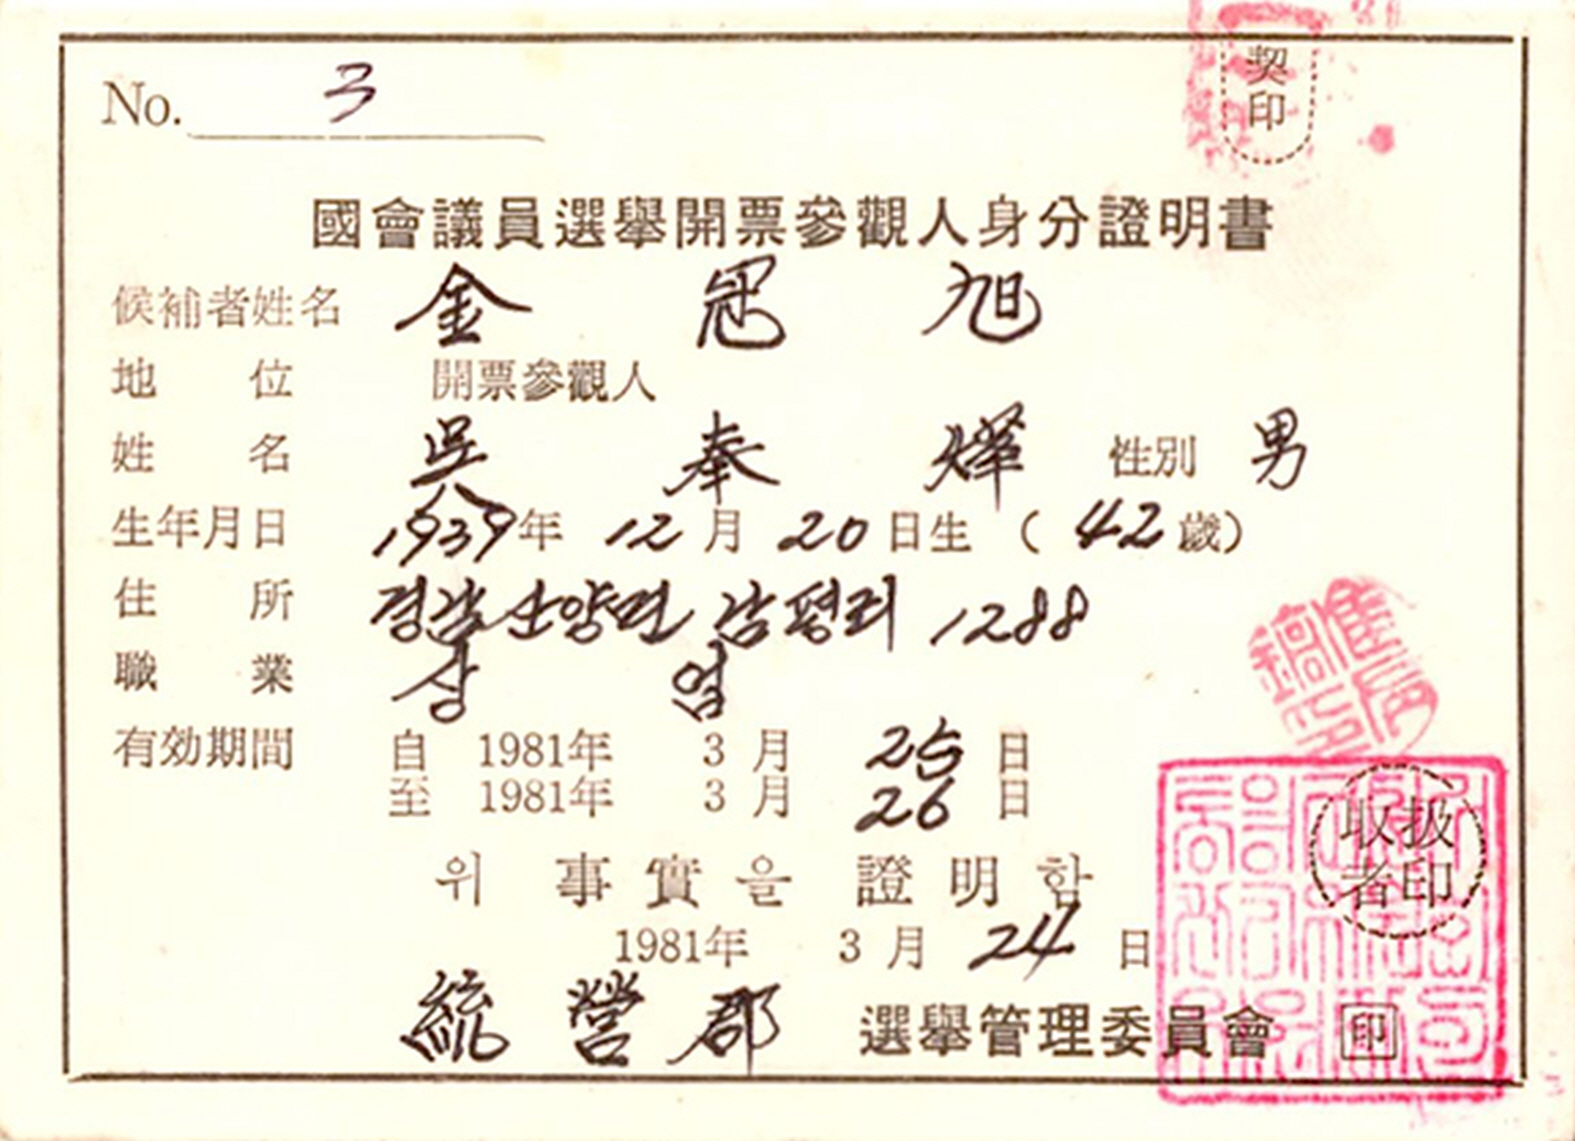 契印
No. 3
國會議員選擧開票參觀人身分證明書
候補者姓名 金 冠 旭
地位 開票參觀人
姓名 吳 奉 燁 性別 男
生年月日 1939年 12月 20日生 (42歲)
住所 경남 산양면 남평리 1288
職業 상업
有効期間 自 1981年 3月 25日
至 1981年 3月 26日
위 事實을 證明함
1981年 3月 24日
統營郡 選擧管理委員會 印
取扱者印